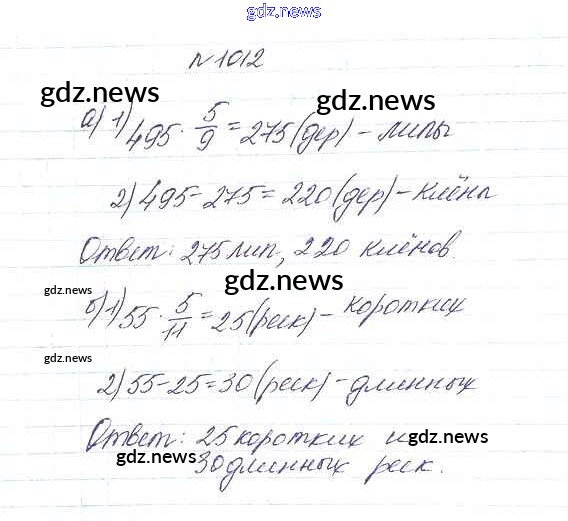 gdz.news
№1012
gdz.news
gdz.news
а) 1) 495 · 5/9 = 275 (дер) - липы
2) 495 - 275 = 220 (дер) - клёны
Ответ: 275 лип, 220 клёнов.
gdz.news
gdz.news
б) 1) 55 · 5/11 = 25 (реек) - коротких
gdz.news
2) 55 - 25 = 30 (реек) - длинных
Ответ: 25 коротких и
gdz.news
gdz.news
30 длинных реек.